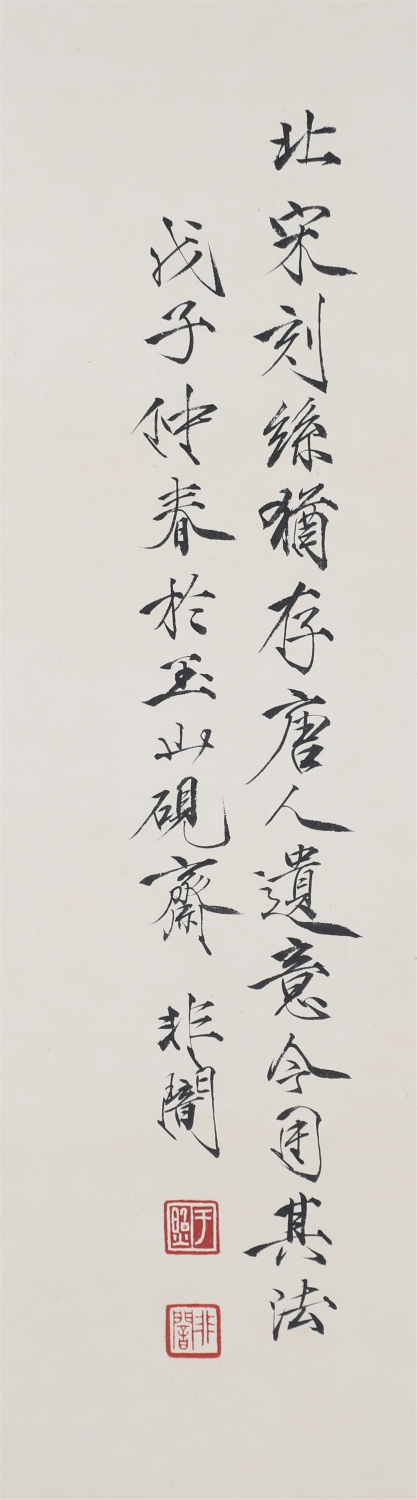 北宋刻絲猶存唐人遺意今用其法
戊子仲春於玉山硯齋 非闇
于照
非闇